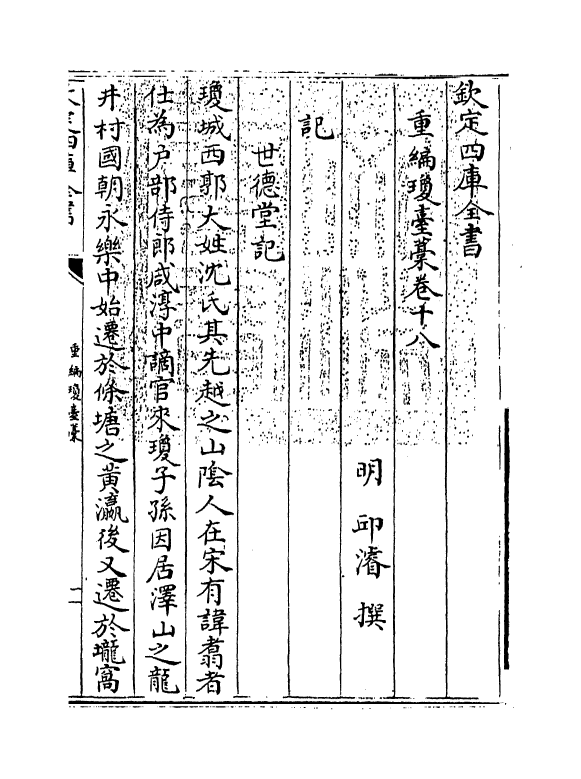 欽定四庫全書
重編瓊臺藁卷十八
明 邱濬 撰
記
世德堂記
瓊城西郭大姓沈氏其先越之山隂人在宋有諱翥者
仕為户部侍郎咸淳中謫官來瓊子孫因居澤山之龍
井村國朝永樂中始遷於條塘之黄瀛後又遷於壠窩
欽定四庫全書
重編瓊臺藁
一